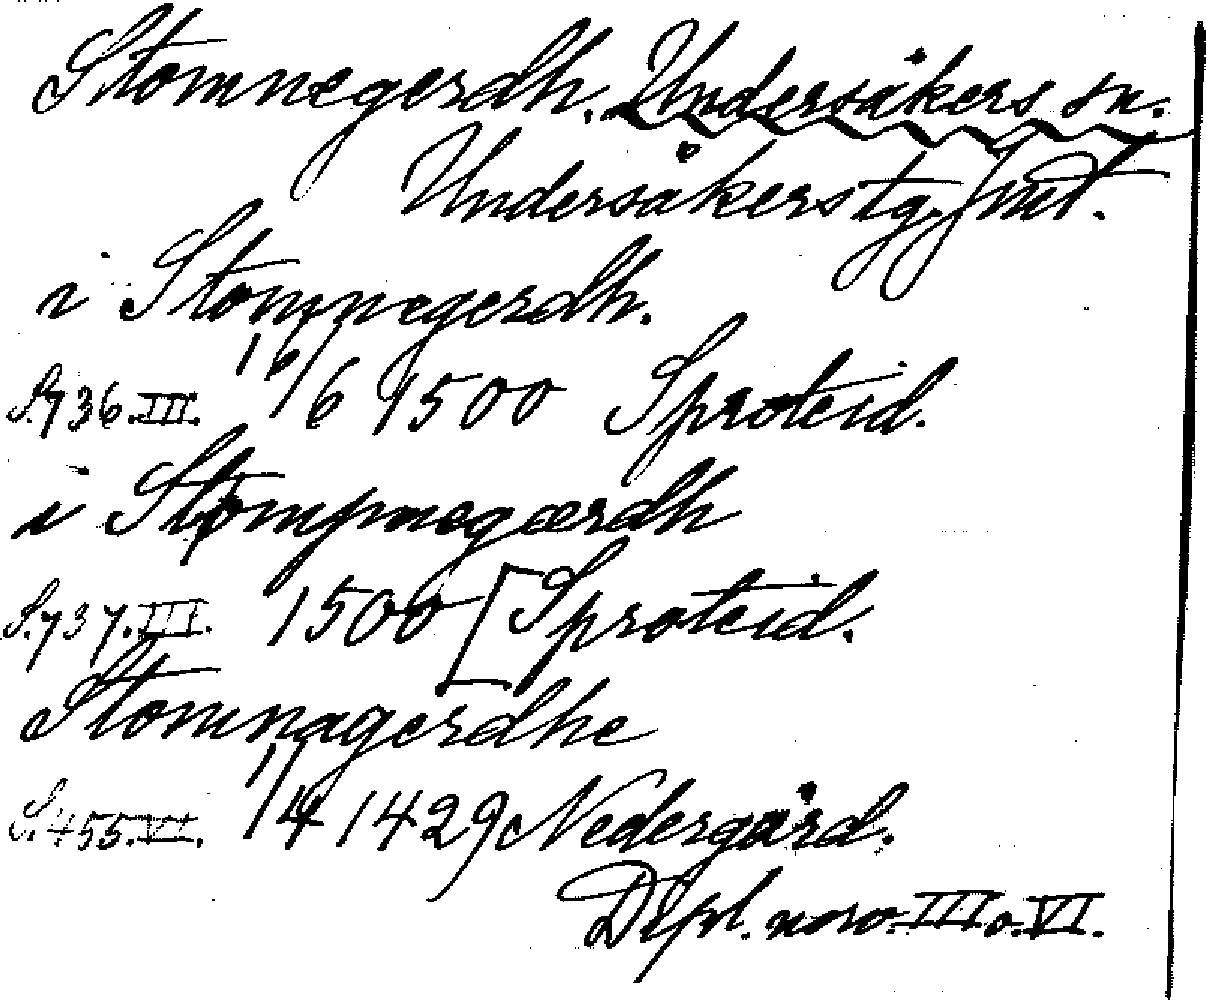 Stomnegerdh. Undersåkers sn.
Undersåkers tg. Jmt.
i Stomnegerdh.
S.736.III. 16/6 1500 Sproteid.
i Stompnegærdh
S.737.III. 1500 [Sproteid.
Stomnagerdhe
S.455.VI. 11/4 1429 Nedergård.
Dipl. norv. III o. VI.